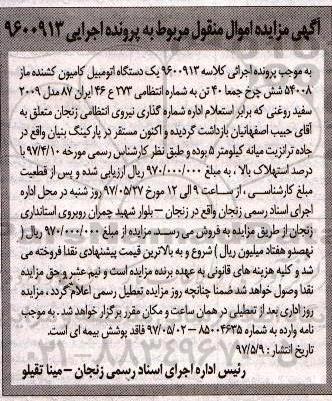 آگهی مزایده اموال منقول مربوط به پرونده اجرایی ۹۶۰۰۹۱۳
به موجب پرونده اجرائی کلاسه ۹۶۰۰۹۱۳ یک دستگاه اتومبیل کامیون کشنده ماز
۵۴۰۰۸ شش چرخ جمعا ۴۰ تن به شماره انتظامی ۲۷۳ ع ۴۶ ایران ۸۷ مدل ۲۰۰۹
سفید روغنی که برابر استعلام اداره شماره گذاری نیروی انتظامی زنجان متعلق به
آقای حبیب اصفهانیان بازداشت گردیده و اکنون مستقر در پارکینگ بنیان واقع در
جاده ترانزیت میانه کیلومتر ۵ بوده و طبق نظر کارشناس رسمی مورخه ۹۷/۴/۱۰ با
درصد استهلاک بالا، به مبلغ ۹۷۰/۰۰۰/۰۰۰ ریال ارزیابی شده و پس از قطعیت
مبلغ کارشناسی، از ساعت ۹ الی ۱۲ مورخ ۹۷/۰۵/۲۷ روز شنبه در محل اداره
اجرای اسناد رسمی زنجان واقع در زنجان – بلوار شهید چمران روبروی استانداری
زنجان از طریق مزایده به فروش می رسد. مزایده از مبلغ ۹۷۰/۰۰۰/۰۰۰ ریال (
نهصدو هفتاد میلیون ریال ) شروع و به بالاترین قیمت پیشنهادی نقدا فروخته می
شد و کلیه هزینه های قانونی به عهده برنده مزایده است و نیم عشر و حق مزایده
نقدا وصول خواهد شد ضمنا چنانچه روز مزایده تعطیل رسمی اعلام گردد ، مزایده
روز اداری بعد از تعطیلی در همان ساعت و مکان مقرر برگزار خواهد شد. به موجب
نامه وارده به شماره ۸۵۰۰۴۶۳۵ – ۹۷/۰۵/۰۲ فاقد پوشش بیمه ای است.
تاریخ انتشار : ۹۷/۵/۹
رئیس اداره اجرای اسناد رسمی زنجان – مینا تقیلو